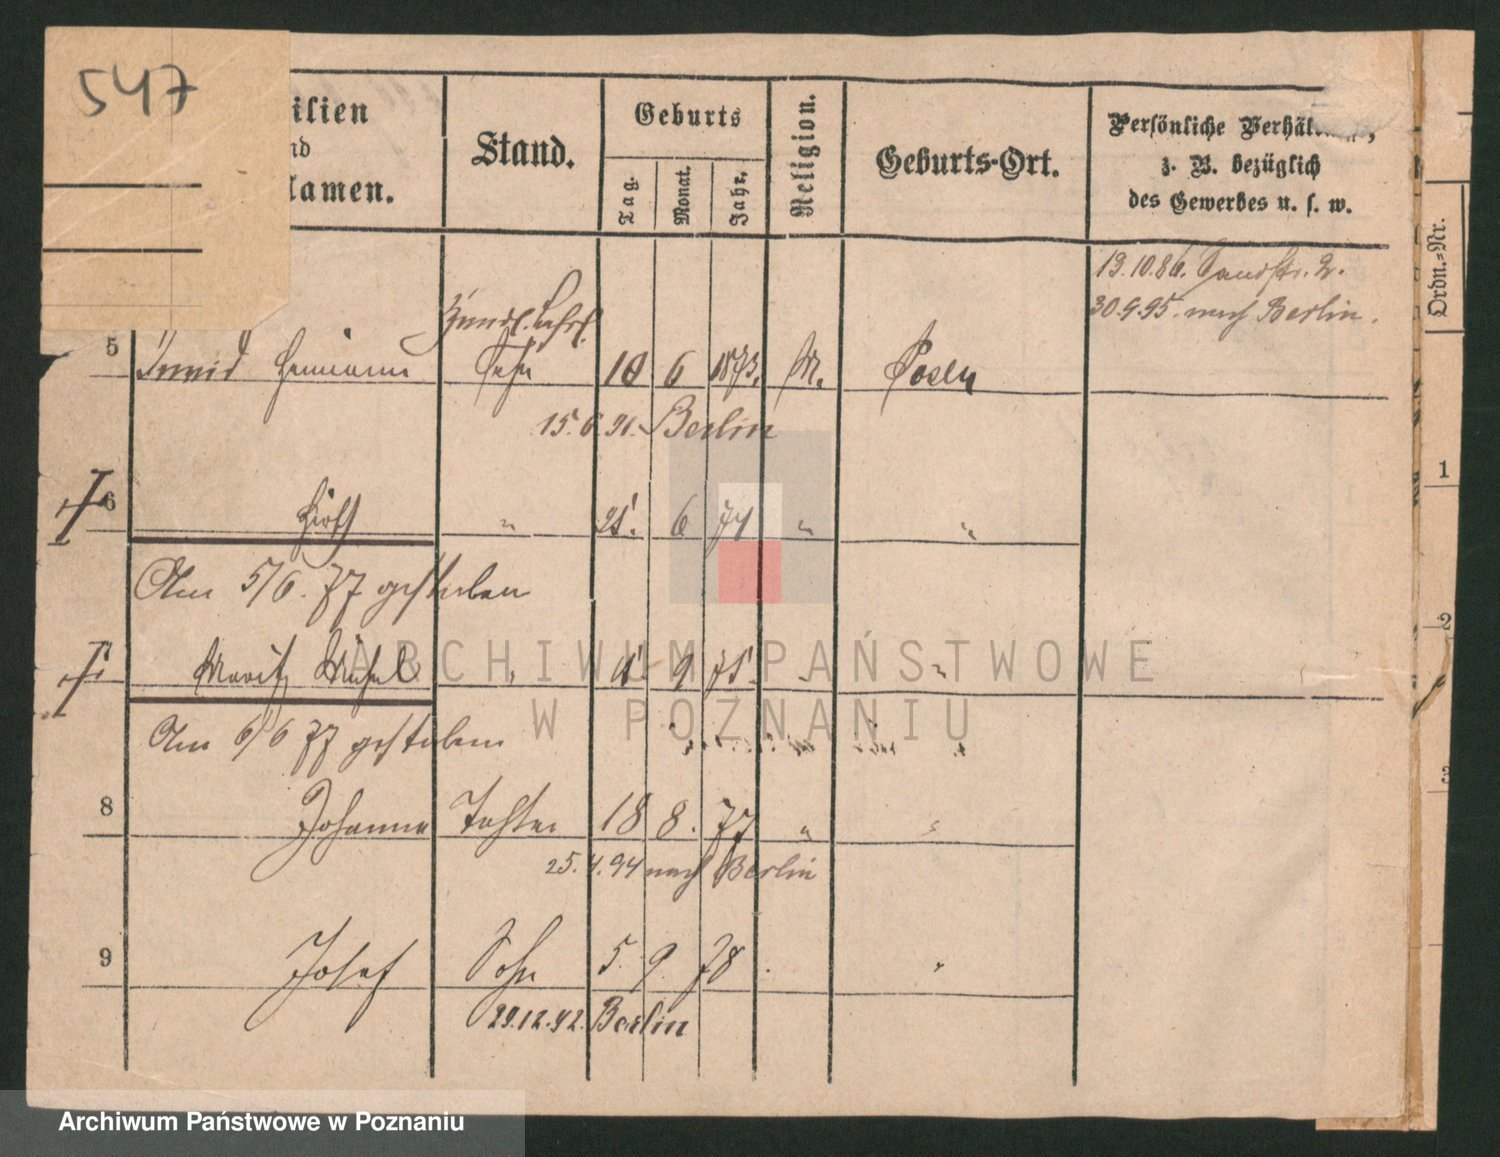 547
ilien
nd
namen.
Stand.
Geburts
Tag.
Monat.
Jahr.
Religion.
Geburts-Ort.
Persönliche Verhält
z. B. bezüglich
des Gewerbes u. s. w.
Ordn.-Nr.
13.10.86. Sandstr. 2.
30.9.95. nach Berlin.
5 Heimann Sohn 18 6 1873. M. Posen
15.6.91. Berlin
6 Hirsch " 25. 6 74 " "
Am 5/6. 77 gestorben
Moritz Michael " 9 75. "
Am 6/6 77 gestorben
8 Johanna Tochter 18 8. 77 " "
25.4.94 nach Berlin
9 Josef Sohn 5. 9. 78 "
29.12.92. Berlin
1
2
3
ARCHIWUM PAŃSTWOWE
W POZNANIU
Archiwum Państwowe w Poznaniu